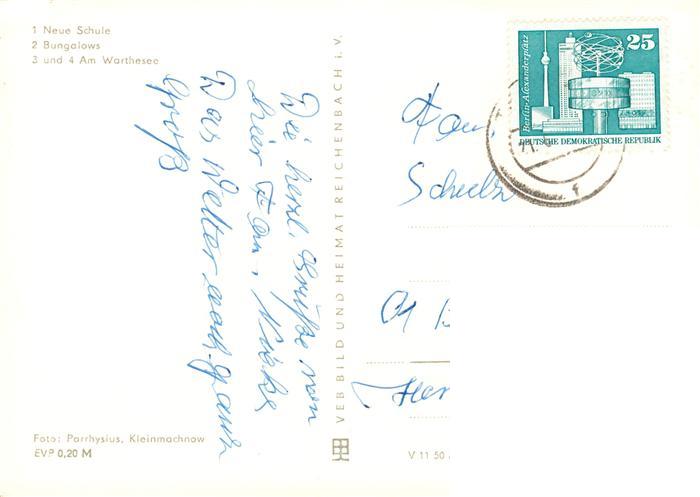 1 Neue Schule
2 Bungalows
3 und 4 Am Warthesee
Die herzl. Grüße von
hier Fam.
Das Wetter auch ganz
groß
Foto: Parrhysius, Kleinmachnow
EVP 0,20 M
VEB BILD UND HEIMAT REICHENBACH i. V.
V 11 50
Berlin-Alexanderplatz
25
DEUTSCHE DEMOKRATISCHE REPUBLIK
Fam.
Schulz